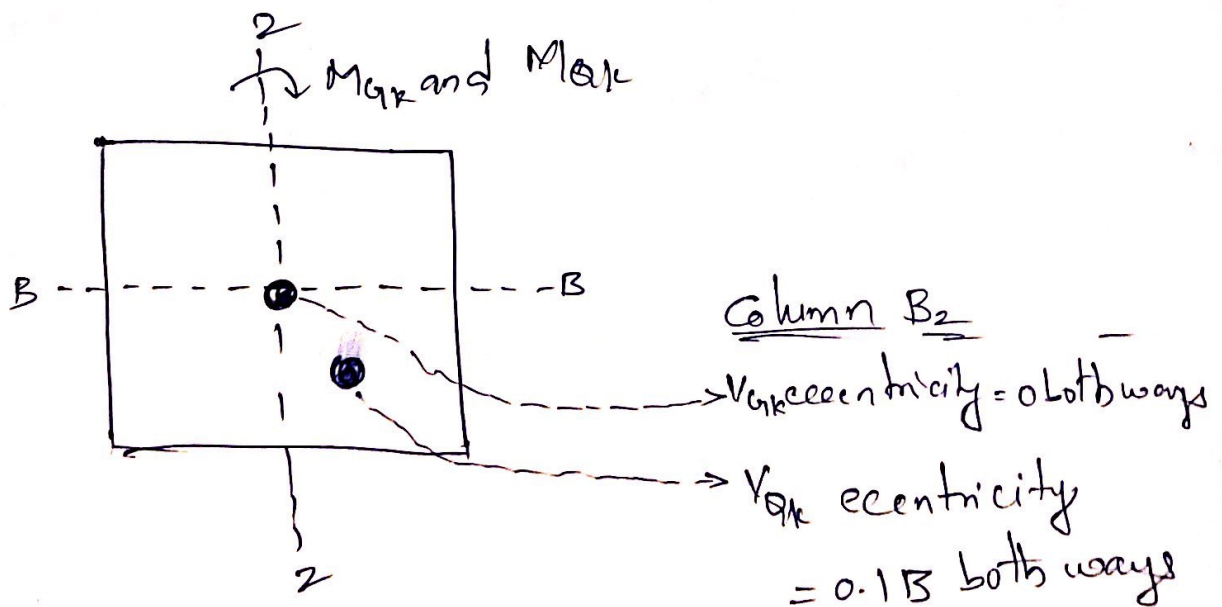 2
M_Gk and M_Qk
B
B
Column B2
V_Gk eccentricity = 0 both ways
V_Qk ecentricity
= 0.1B both ways
2